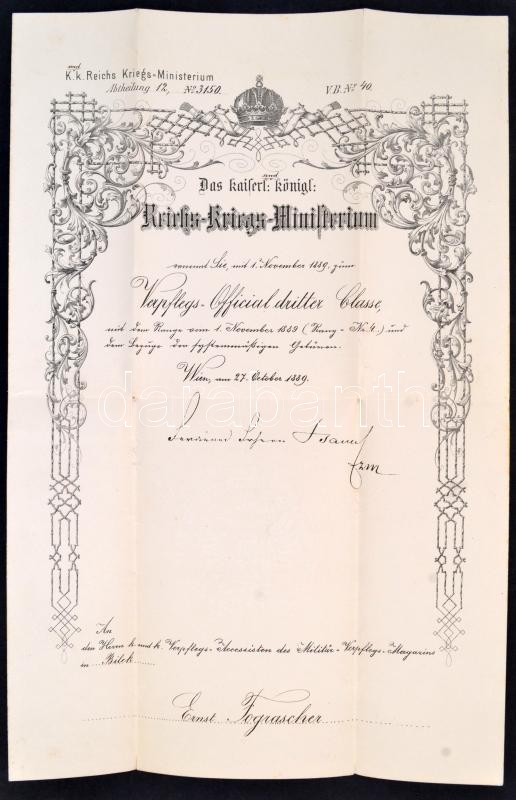 und
K. k. Reichs Kriegs-Ministerium
Abtheilung 12, No 3150. V.B. No 40.
und
Das kaiserl: königl:
Reichs-Kriegs-Ministerium
ernennt Sie, mit 1t November 1889, zum
Verpflegs-Official dritter Classe,
mit dem Range vom 1. November 1889 (Rang-No 4.) und
dem Bezuge der systemmäßigen Gebüren.
Wien, am 27. October 1889.
darabanth
Ferdinand Frhrrn
Fzm
An
den Herrn k. und k. Verpflegs-Accessisten des Militär-Verpflegs-Magazins
in Bilek
Ernst Fograscher